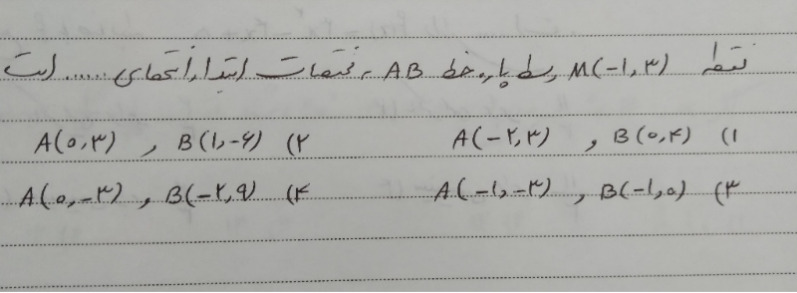 نقطه M(-۱,۳) وسط پاره خط AB ، مختصات ابتدا و انتهای ...... است
۱) A(-۲,۳) , B(۰,۴) ۲) A(۰,۳) , B(۱,-۶)
۳) A(-۱,-۳) , B(-۱,۰) ۴) A(۰,-۳) , B(-۲,۹)